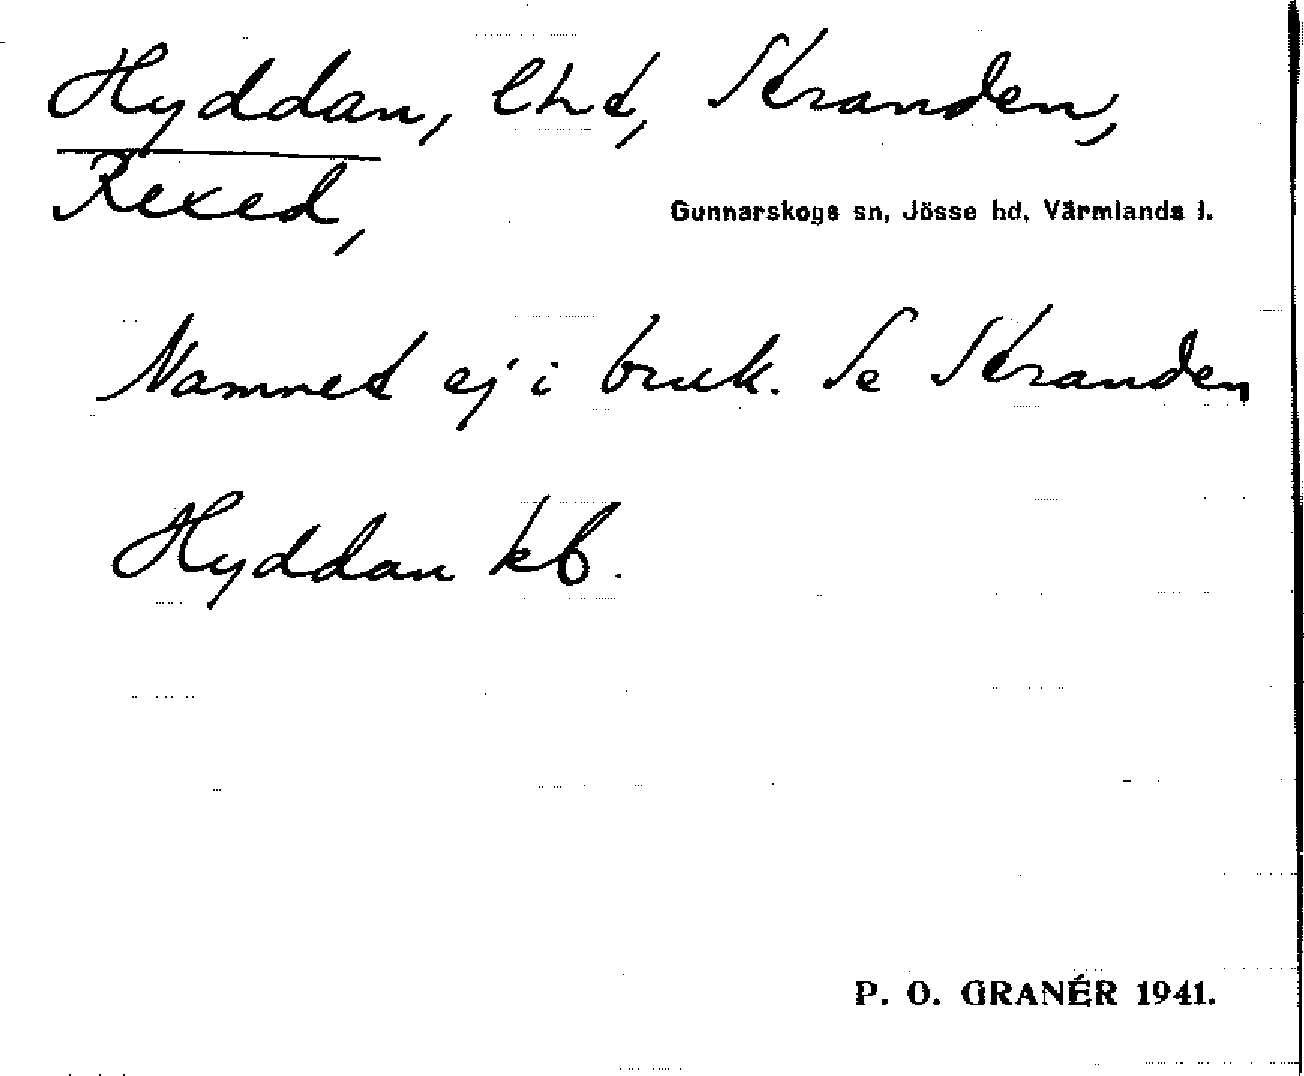 Hyddan, lht, Stranden,
Rexed,
Gunnarskogs sn, Jösse hd, Värmlands l.
Namnet ej i bruk. Se Stranden
Hyddan kb.
P. O. GRANÉR 1941.